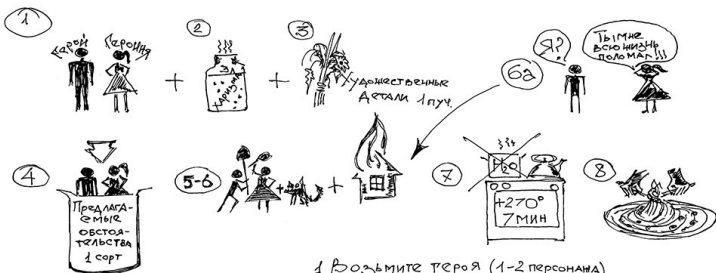 1
Герой Героиня
2
Харизма
3
Художественные
детали 1 пуч.
6а
Я?
Ты мне
всю жизнь
поломал!!!
4
Предлага-
емые
обстоя-
тельства
1 сорт
5-6
7
H₂O
+270°
7 мин
8
1 Возьмите героя (1-2 персонажа)